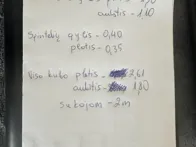 aukštis - 1,10
Sportelių gylis - 0,40
plotis - 0,35
Viso kubo plotis - 2,61
aukštis - 1,10
Su kojom - 2m